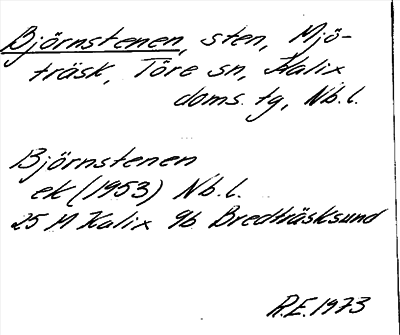 Björnstenen, sten, Mjö-
träsk, Töre sn, Kalix
doms. tg, Nb. l.
Björnstenen
ek (1953) Nb. l.
25 M Kalix 9b Bredträsksund
R.E. 1973